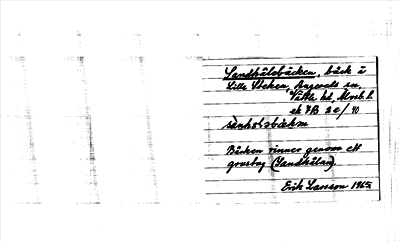 Sandhålsbäcken, bäck å
Lilla Steken, Angereds sn,
Vättle hd, Älvsb. l.
ek 7B 2e/40
sanholsbækən
Bäcken rinner genom ett
grustag (Sandhålan).
Erik Larsson 1965